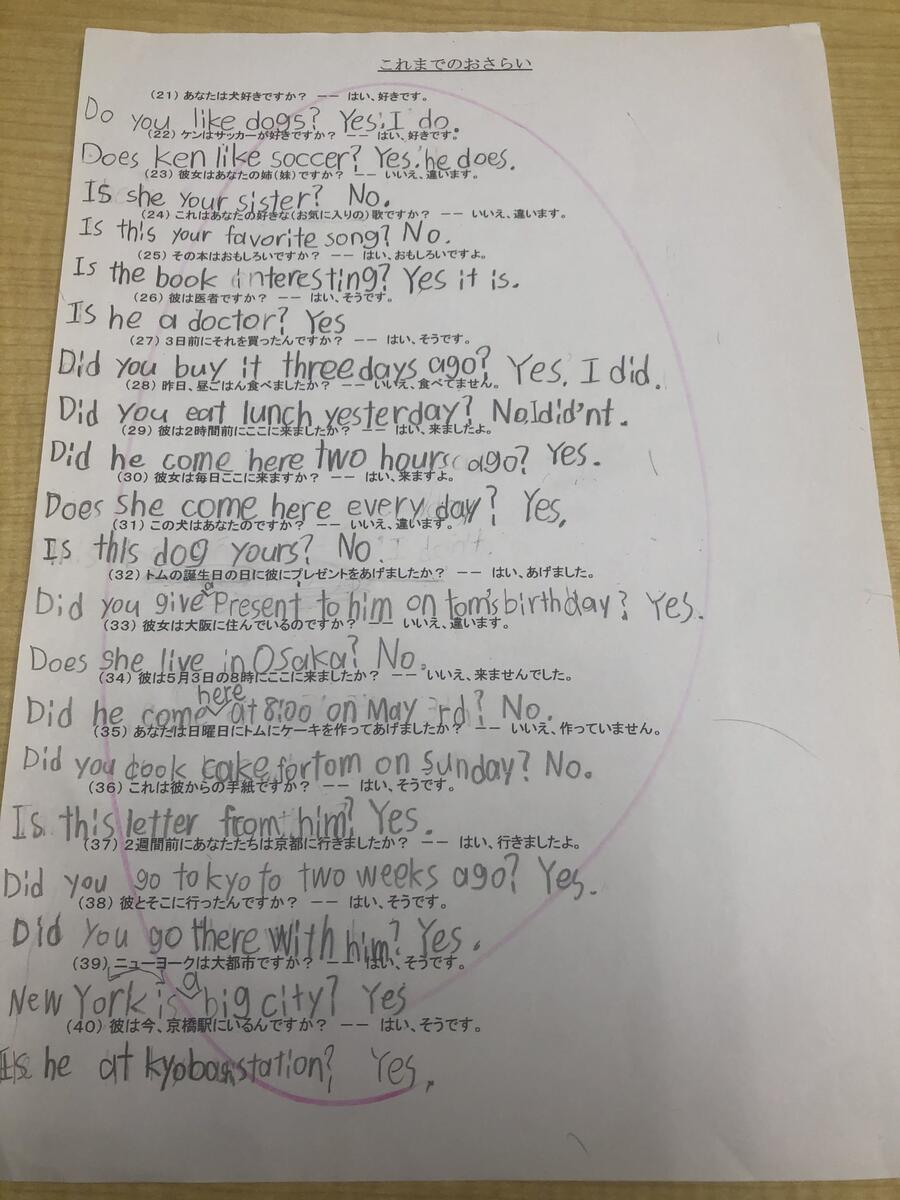 これまでのおさらい
(21) あなたは犬好きですか？ ―― はい、好きです。
Do you like dogs? Yes, I do.
(22) ケンはサッカーが好きですか？ ―― はい、好きです。
Does ken like soccer? Yes. he does.
(23) 彼女はあなたの姉(妹)ですか？ ―― いいえ、違います。
Is she your sister? No.
(24) これはあなたの好きな(お気に入りの)歌ですか？ ―― いいえ、違います。
Is this your favorite song? No.
(25) その本はおもしろいですか？ ―― はい、おもしろいですよ。
Is the book interesting? Yes it is.
(26) 彼は医者ですか？ ―― はい、そうです。
Is he a doctor? Yes
(27) 3日前にそれを買ったんですか？ ―― はい、そうです。
Did you buy it three days ago? Yes, I did.
(28) 昨日、昼ごはん食べましたか？ ―― いいえ、食べてません。
Did you eat lunch yesterday? No, I did'nt.
(29) 彼は2時間前にここに来ましたか？ ―― はい、来ましたよ。
Did he come here two hours ago? Yes.
(30) 彼女は毎日ここに来ますか？ ―― はい、来ますよ。
Does she come here every day? Yes.
(31) この犬はあなたのですか？ ―― いいえ、違います。
Is this dog yours? No.
(32) トムの誕生日の日に彼にプレゼントをあげましたか？ ―― はい、あげました。
Did you give a Present to him on tom's birthday? Yes.
(33) 彼女は大阪に住んでいるのですか？ ―― いいえ、違います。
Does she live in Osaka? No.
(34) 彼は5月3日の8時にここに来ましたか？ ―― いいえ、来ませんでした。
Did he come here at 8:00 on May 3rd? No.
(35) あなたは日曜日にトムにケーキを作ってあげましたか？ ―― いいえ、作っていません。
Did you cook cake for tom on sunday? No.
(36) これは彼からの手紙ですか？ ―― はい、そうです。
Is this letter from him? Yes.
(37) 2週間前にあなたたちは京都に行きましたか？ ―― はい、行きましたよ。
Did you go to kyoto two weeks ago? Yes.
(38) 彼とそこに行ったんですか？ ―― はい、そうです。
Did you go there with him? Yes.
(39) ニューヨークは大都市ですか？ ―― はい、そうです。
New York is a big city? Yes
(40) 彼は今、京橋駅にいるんですか？ ―― はい、そうです。
Is he at station? Yes.